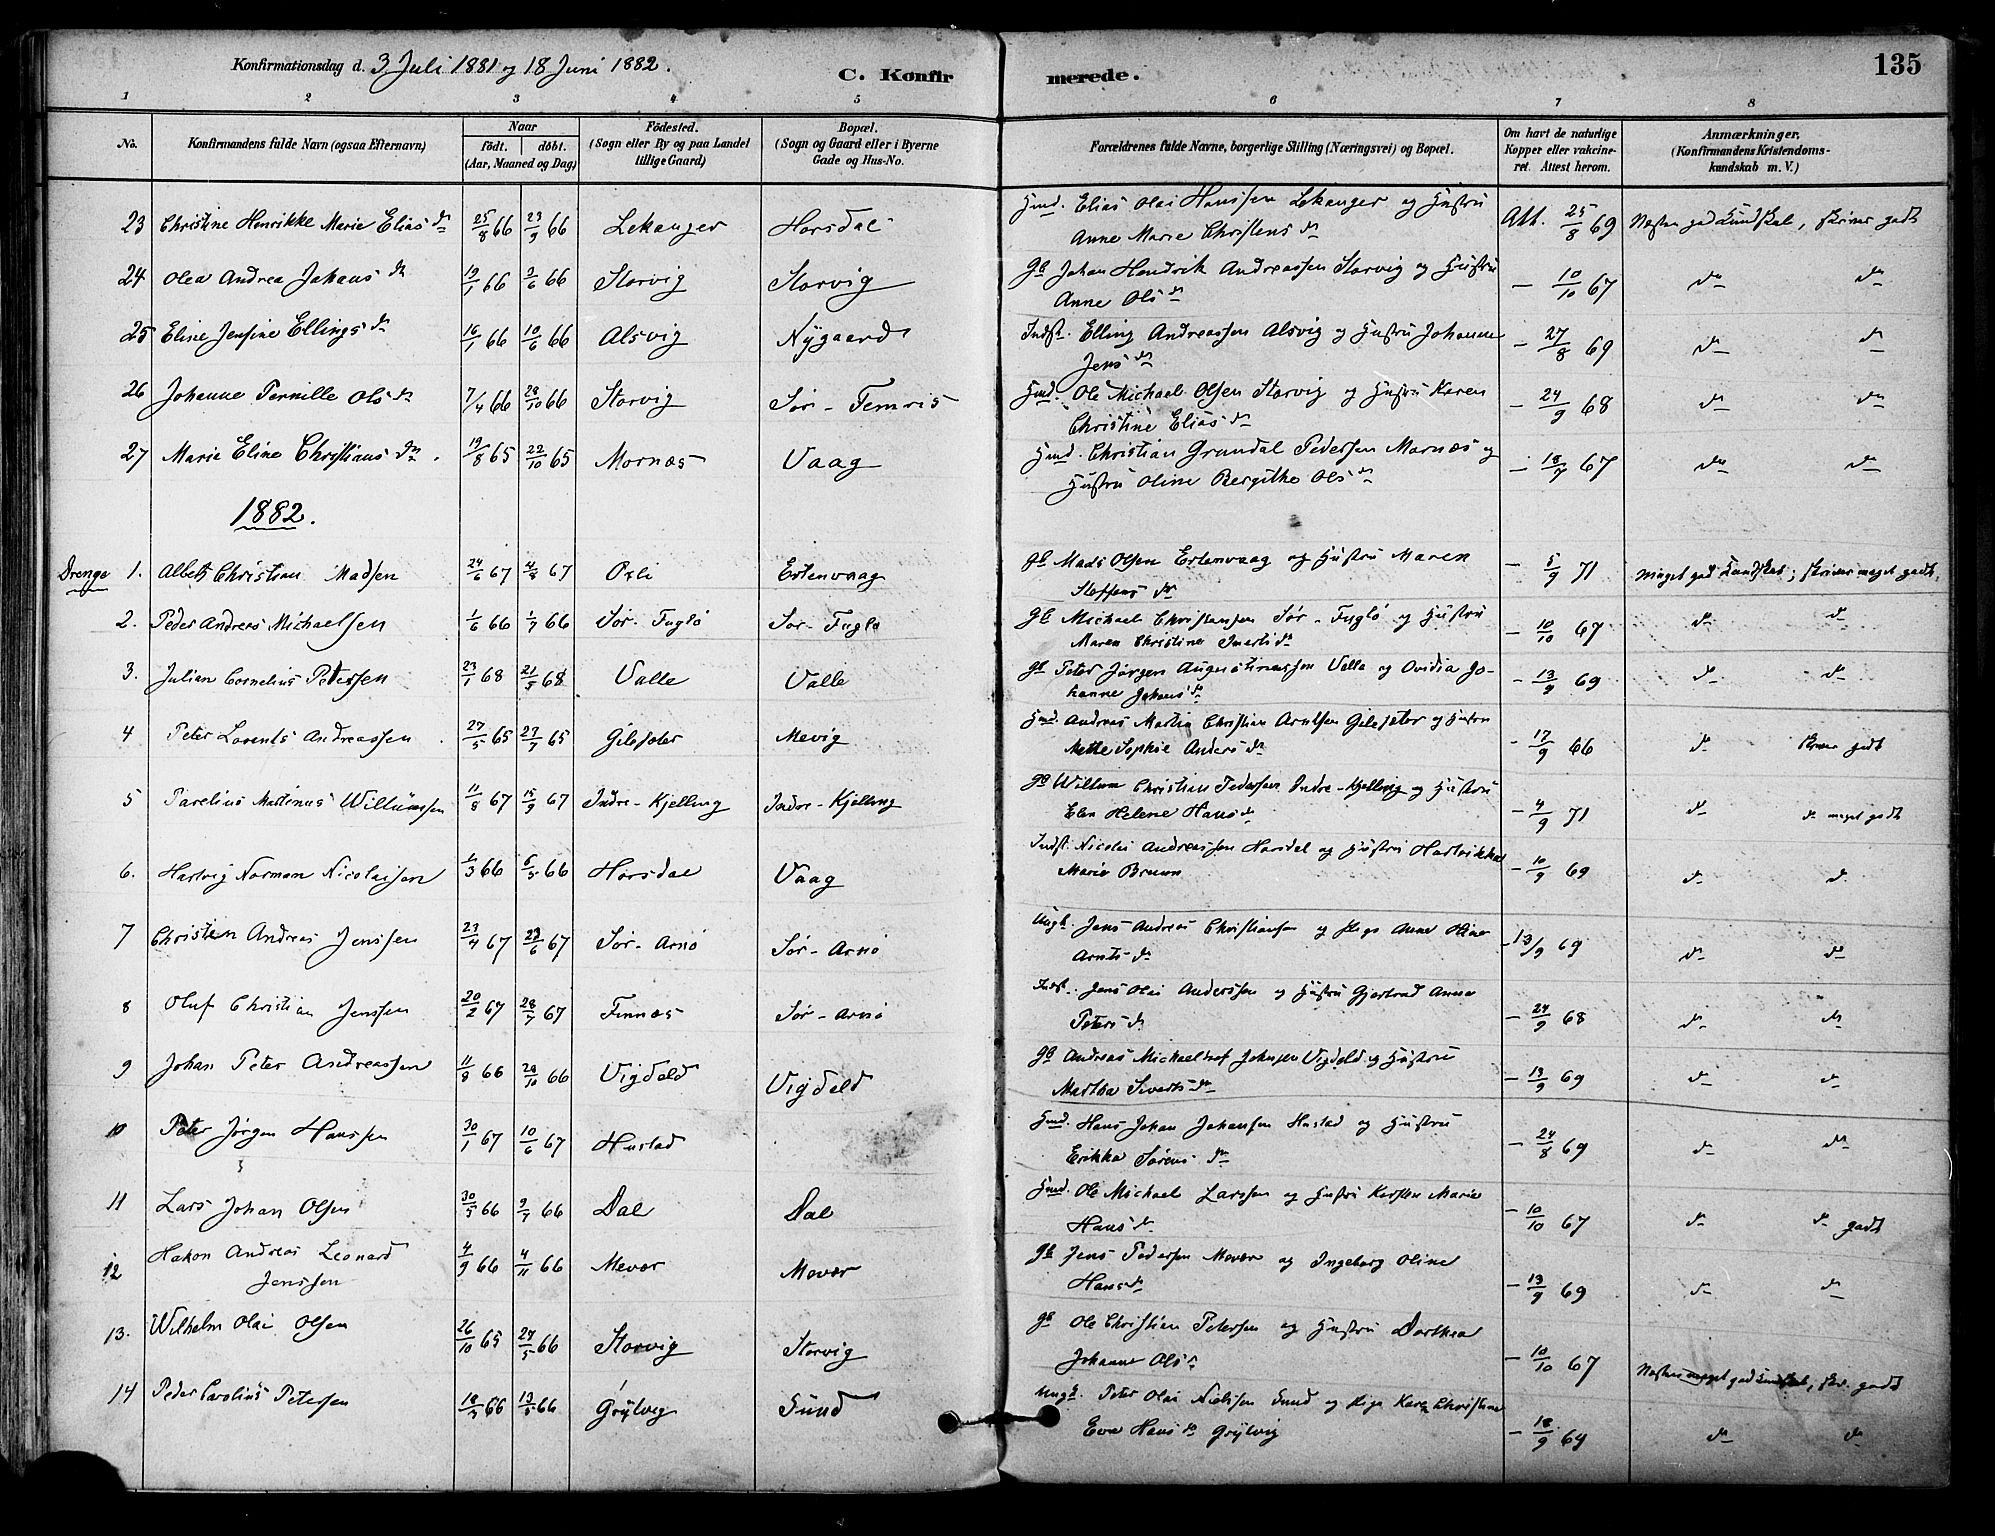 135
Konfirmationsdag d. 3 Juli 1881 og 18 Juni 1882.
C. Konfirmerede.
1 2 3 4 5 6 7 8
No. Konfirmandens fulde Navn (ogsaa Efternavn) Naar født. døbt. (Aar, Maaned og Dag) Fødested. (Sogn eller By og paa Landet tillige Gaard) Bopæl. (Sogn og Gaard eller i Byerne Gade og Hus-No. Forældrenes fulde Navne, borgerlige Stilling (Næringsvei) og Bopæl. Om havt de naturlige Kopper eller vakcineret. Attest herom. Anmærkninger. (Konfirmandens Kristendomskundskab m. V.)
23 Christine Henrikke Marie Elias dr 25/8 66 23/9 66 Lekanger Horsdal Hmd. Elias Olai Hanssen Lekanger og Hustru Att. 25/8 69 Næsten god Kundskab, skriver godt
Anne Marie Christens dr
24 Olea Andrea Johans dr 19/1 66 3/6 66 Storvig Storvig Gb Johan Hendrik Andreassen Storvig og Hustru — 10/10 67 do do
Anne Ols dr
25 Eline Jensine Ellings dr 16/1 66 10/6 66 Alsvig Nygaard Indst. Elling Andreassen Alsvig og Hustru Johanne — 27/8 69 do do
Jens dr
26 Johanne Pernille Ols dr 7/4 66 28/10 66 Storvig Sør-Femris Hmd. Ole Michael Olsen Storvig og Hustru Karen — 24/9 68 do do
Christine Elias dr
27 Marie Eline Christians dr. 19/8 65 22/10 65 Mornæs Vaag Hmd. Christian Grundal Pedersen Marnæs og — 18/7 67 do do
Hustru Oline Bergithe Ols dr
1882.
Drenge 1. Albert Christian Madsen 24/6 67 4/8 67 Oxli Estenvaag Gb Mads Olsen Estenvaag og Hustru Maren — 5/9 71 Meget god Kundskab, skriver meget godt,
Steffens dr
2. Peder Andreas Michaelsen 1/6 66 1/7 66 Sør-Fuglø Sør-Fuglø Gb Michael Christensen Sør-Fuglø og Hustru — 10/10 67 do do
Maren Christine
3. Julian Cornelius Petersen 23/1 68 21/5 68 Valle Valle Gb Peter Jørgen Augustinussen Valle og Ovidia Jo- — 13/9 69 do do
hanne Johans dr
4 Peter Lorents Andreassen 27/5 65 23/7 65 Gilesæter Mevig Hmd. Andreas Martin Christian Arntsen Gilesæter og Hustru — 17/9 66 do skriver godt
Mette Sophie Anders dr
5 Parelius Martinus Willumsen 11/8 67 15/9 67 Indre-Kjelling Indre-Kjelling Gb Willum Christian Pedersen Indre-Kjelling og Hustru — 4/9 71 do do meget godt
Elen Helene Hans dr
6. Hartvig Norman Nicolaisen 1/3 66 6/5 66 Horsdal Vaag Indst. Nicolai Andreassen Horsdal og Hustru Hartvikka — 10/9 69 do do
Marie Bruun
7 Christen Andreas Jenssen 23/4 67 23/6 67 Sør-Arnø Sør-Arnø Ungk. Jens Andreas Christiansen og Pige Anne Oline — 13/9 69 do do
Arnts dr
8 Oluf Christian Jenssen 20/2 67 28/7 67 Finnæs Sør-Arnø Indst. Jens Olai Anderssen og Hustru Gjertrud Anna — 24/9 68 do do
Peters dr
9 Johan Peter Andreassen 11/8 66 28/10 66 Vigdeld Vigdeld Gb Andreas Johnsen Vigdeld og Hustru — 13/9 69 do do
Martha Siverts dr
10 Peter Jørgen Hanssen 30/1 67 10/6 67 Hustad Hmd. Hans Johan Johansen Hustad og Hustru — 24/8 69 do do
Erikka Sørens dr
11 Lars Johan Olsen 30/3 66 9/7 66 Dal Dal Hmd. Ole Michael Larssen og Hustru Kirsten Marie — 10/10 67 do do godt
Hans dr
12 Hakon Andreas Leonard 4/9 66 4/11 66 Mevær Mevær Gb Jens Pedersen Mevær og Ingeborg Oline — 13/9 69 do do
Jenssen Hans dr
13. Wilhelm Olai Olsen 26/10 65 27/5 66 Storvig Storvig Gb Ole Christian Petersen og Hustru Dorthea — 10/10 67
Johanne Ols dr
14 Peder Carolius Petersen 18/3 66 13/5 66 Grytvig Sund Ungk. Peter Olai Nielssen Sund og Pige Karen Christine — 18/9 69 Næsten meget god Kundskab, skr. godt
Eva Hans dr Grytvig do do